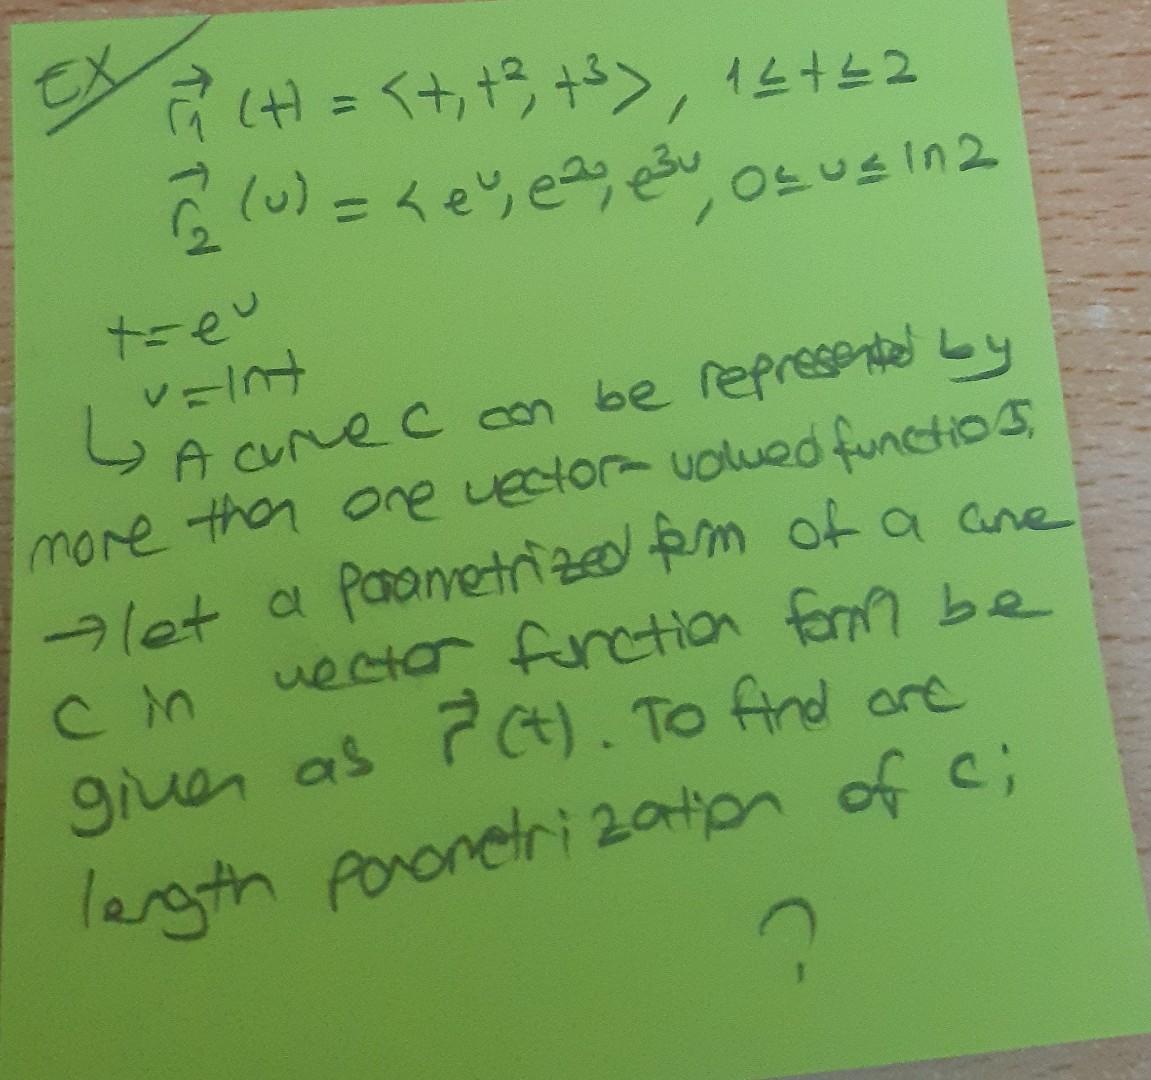 EX
r⃗₁(t) = <t, t², t³>, 1≤t≤2
r⃗₂(u) = <eᵘ, e²ᵘ, e³ᵘ, 0≤u≤ln2
t=eᵘ
u=lnt
↳ A curve C can be represented by
more than one vector-valued functios.
→let a parametrized form of a curve
C in vector function form be
given as r⃗(t). To find arc
length parametrization of C;
?